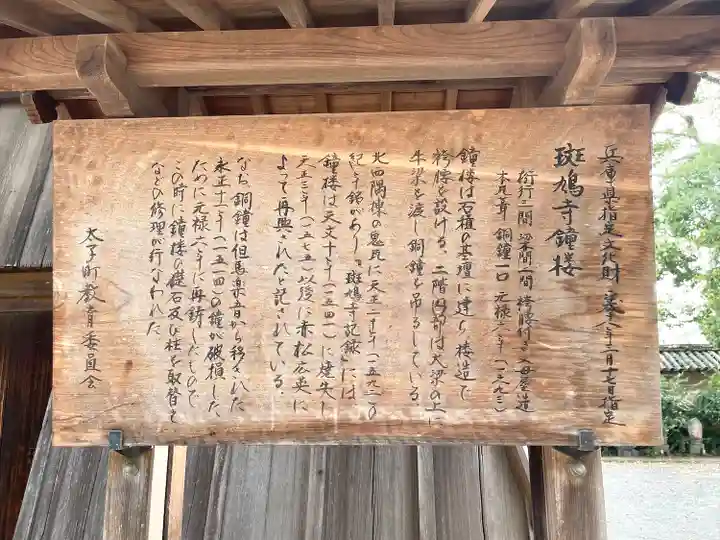 兵庫県指定文化財 昭和四十八年三月十七日指定
斑鳩寺鐘楼
桁行三間 梁間二間 袴腰付き 入母屋造
本瓦葺 銅鐘一口 元禄六年(一六九三)
鐘楼は石積の基壇に建ち楼造で
袴腰を設ける。二階内部は大梁の上に
牛梁を渡し銅鐘を吊るしている。
北西隅棟の鬼瓦に天正二十年(一五九二)の
紀年銘があり「斑鳩寺記録」には
鐘楼は天文十年(一五四一)に焼失し
天正三年(一五七五)以後に赤松広英に
よって再興されたと記されている。
なお 銅鐘は但馬楽音から移された
永正十一年(一五一四)の鐘が破損した
ために元禄六年に再鋳したもので
この時に鐘楼の礎石及び柱を取替え
などの修理が行なわれた
太子町教育委員会